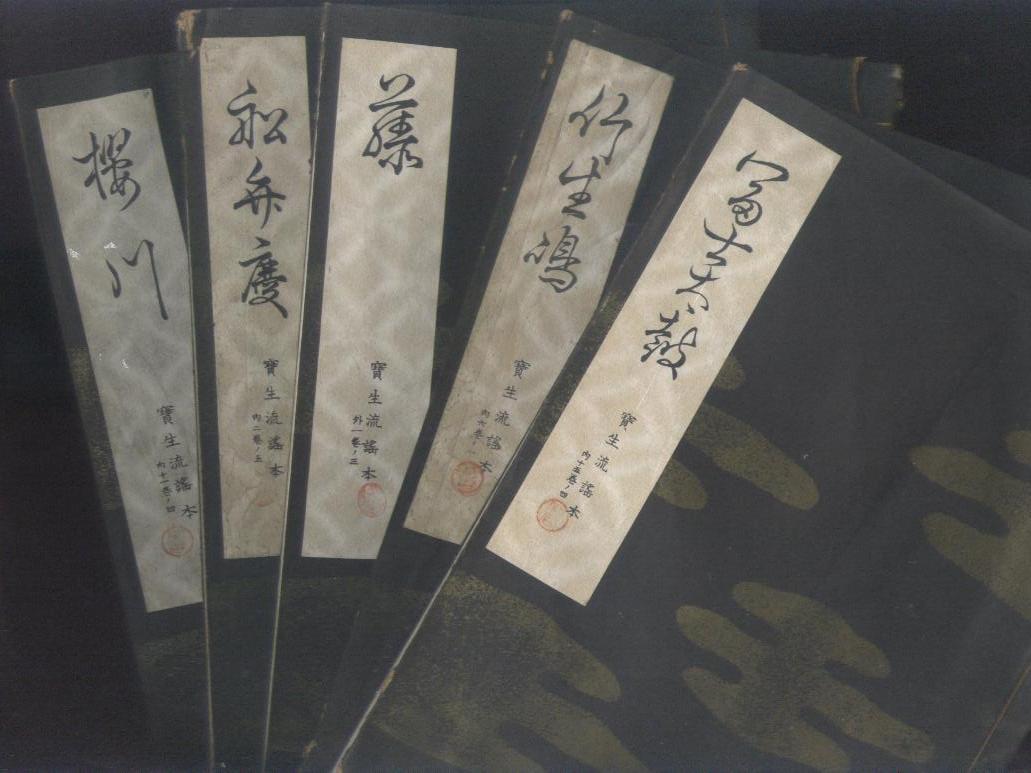 冨士太鼓
寶生流謠本
内十五卷ノ四
竹生嶋
寶生流謠本
内六卷ノ一
藤
寶生流謠本
外一卷ノ三
舩弁慶
寶生流謠本
内二卷ノ五
櫻川
寶生流謠本
内十一卷ノ四